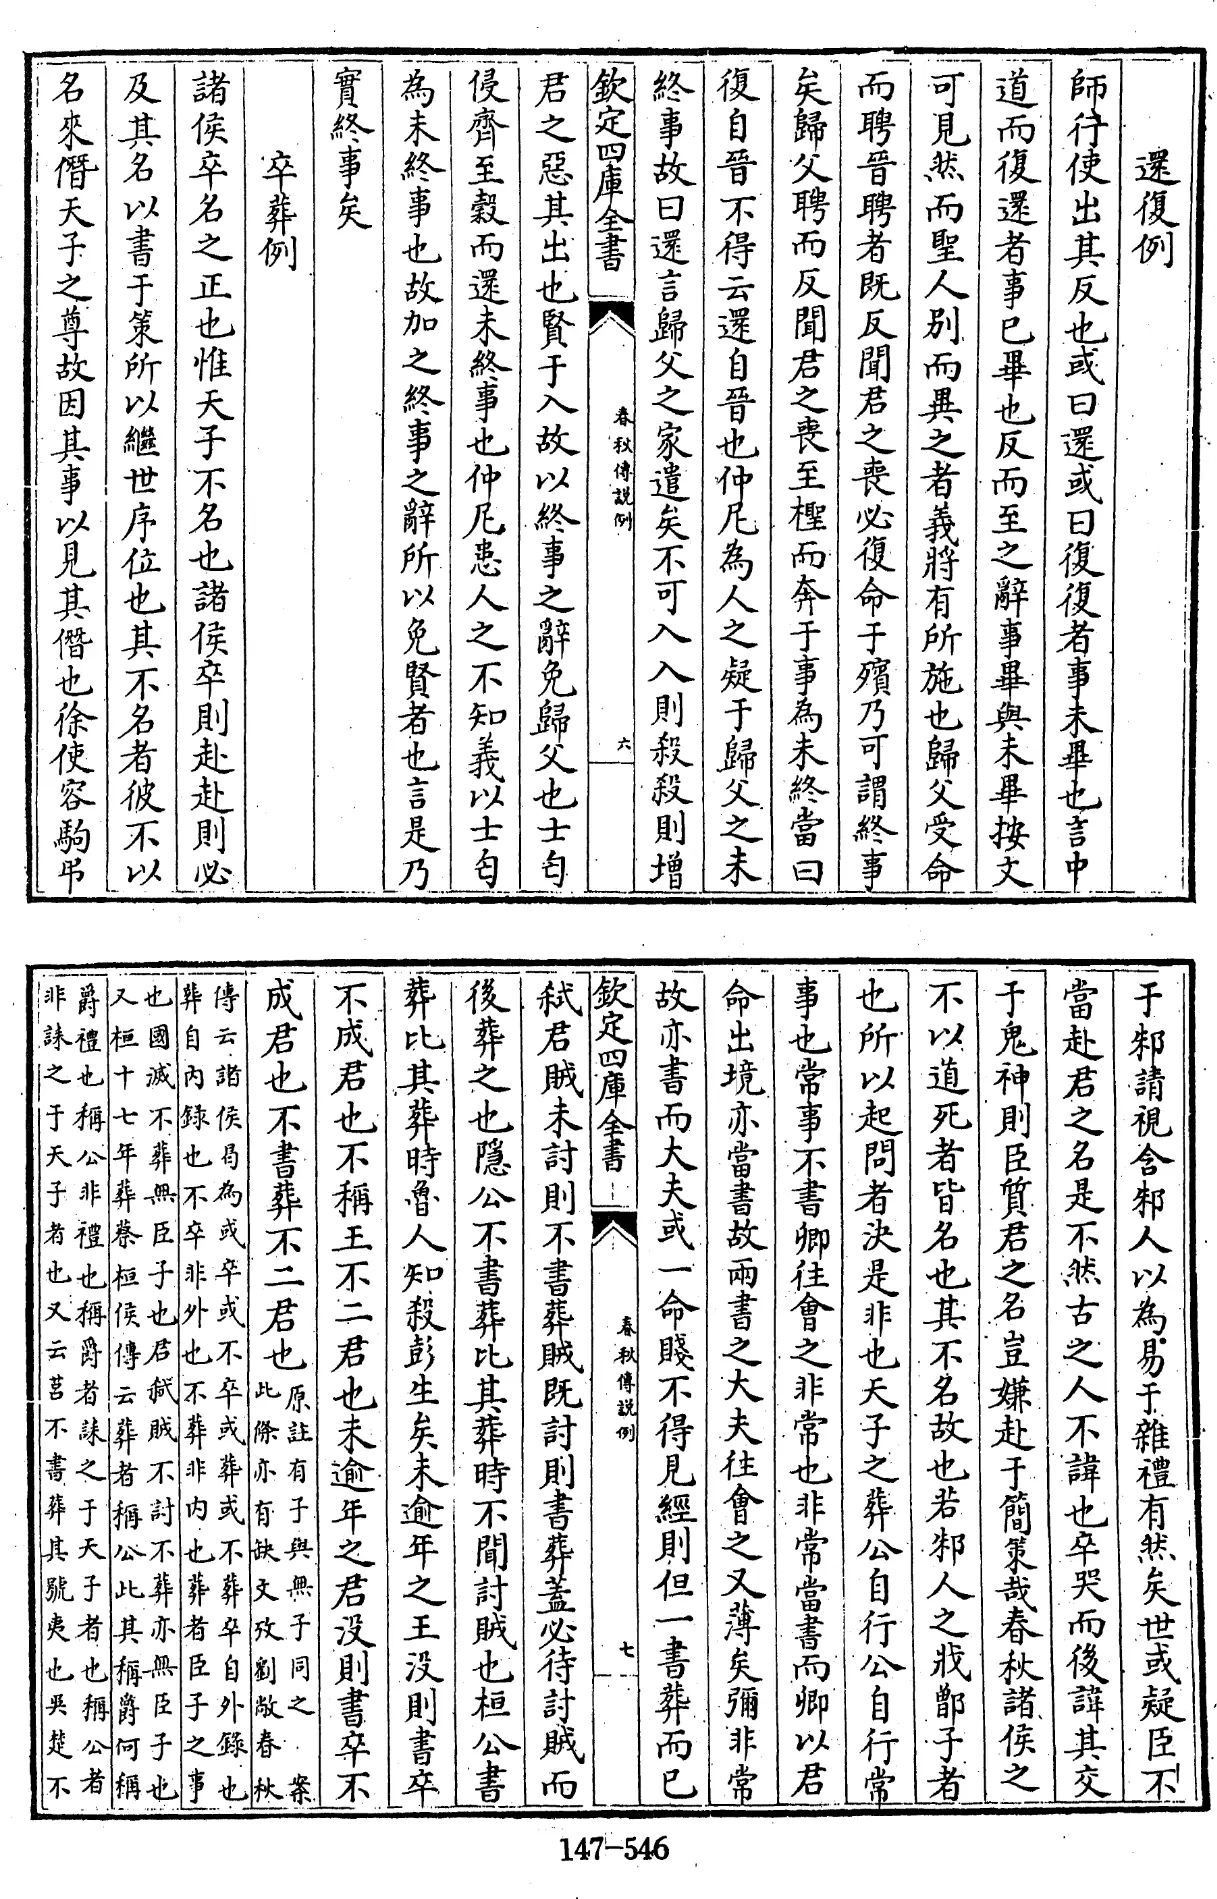 還復例
師行使出其反也或曰還或曰復復者事未畢也言中
道而復還者事已畢也反而至之辭事畢與未畢按文
可見然而聖人別而異之者義將有所施也歸父受命
而聘晉聘者既反聞君之喪必復命于殯乃可謂終事
矣歸父聘而反聞君之喪至檉而奔于事為未終當曰
復自晉不得云還自晉也仲尼為人之疑于歸父之未
終事故曰還言歸父之家遣矣不可入入則殺殺則增
欽定四庫全書
春秋傳說例
六
君之惡其出也賢于入故以終事之辭免歸父也士匄
侵齊至穀而還未終事也仲尼患人之不知義以士匄
為未終事也故加之終事之辭所以免賢者也言是乃
實終事矣
卒葬例
諸侯卒名之正也惟天子不名也諸侯卒則赴赴則必
及其名以書于策所以繼世序位也其不名者彼不以
名來僭天子之尊故因其事以見其僭也徐使容駒弔
于邾請視含邾人以為易于雜禮有然矣世或疑臣不
當赴君之名是不然古之人不諱也卒哭而後諱其交
于鬼神則臣質君之名豈嫌赴于簡策哉春秋諸侯之
不以道死者皆名也其不名故也若邾人之戕鄫子者
也所以起問者決是非也天子之葬公自行公自行常
事也常事不書卿往會之非常也非常當書而卿以君
命出境亦當書故兩書之大夫往會之又薄矣彌非常
故亦書而大夫或一命賤不得見經則但一書葬而已
欽定四庫全書
春秋傳說例
七
弒君賊未討則不書葬賊既討則書葬蓋必待討賊而
後葬之也隱公不書葬比其葬時不聞討賊也桓公書
葬比其葬時魯人知殺彭生矣未逾年之王沒則書卒
不成君也不稱王不二君也未逾年之君沒則書卒不
成君也不書葬不二君也原註有子與無子同之 案
此條亦有缺文攷劉敞春秋
傳云諸侯曷為或卒或不卒或葬或不葬卒自外錄也
葬自內錄也不卒非外也不葬非內也葬者臣子之事
也國滅不葬無臣子也君弒賊不討不葬亦無臣子也
又桓十七年葬蔡桓侯傳云葬者稱公此其稱爵何稱
爵禮也稱公非禮也稱爵者誄之于天子者也稱公者
非誄之于天子者也又云莒不書葬其號夷也吳楚不
147-546